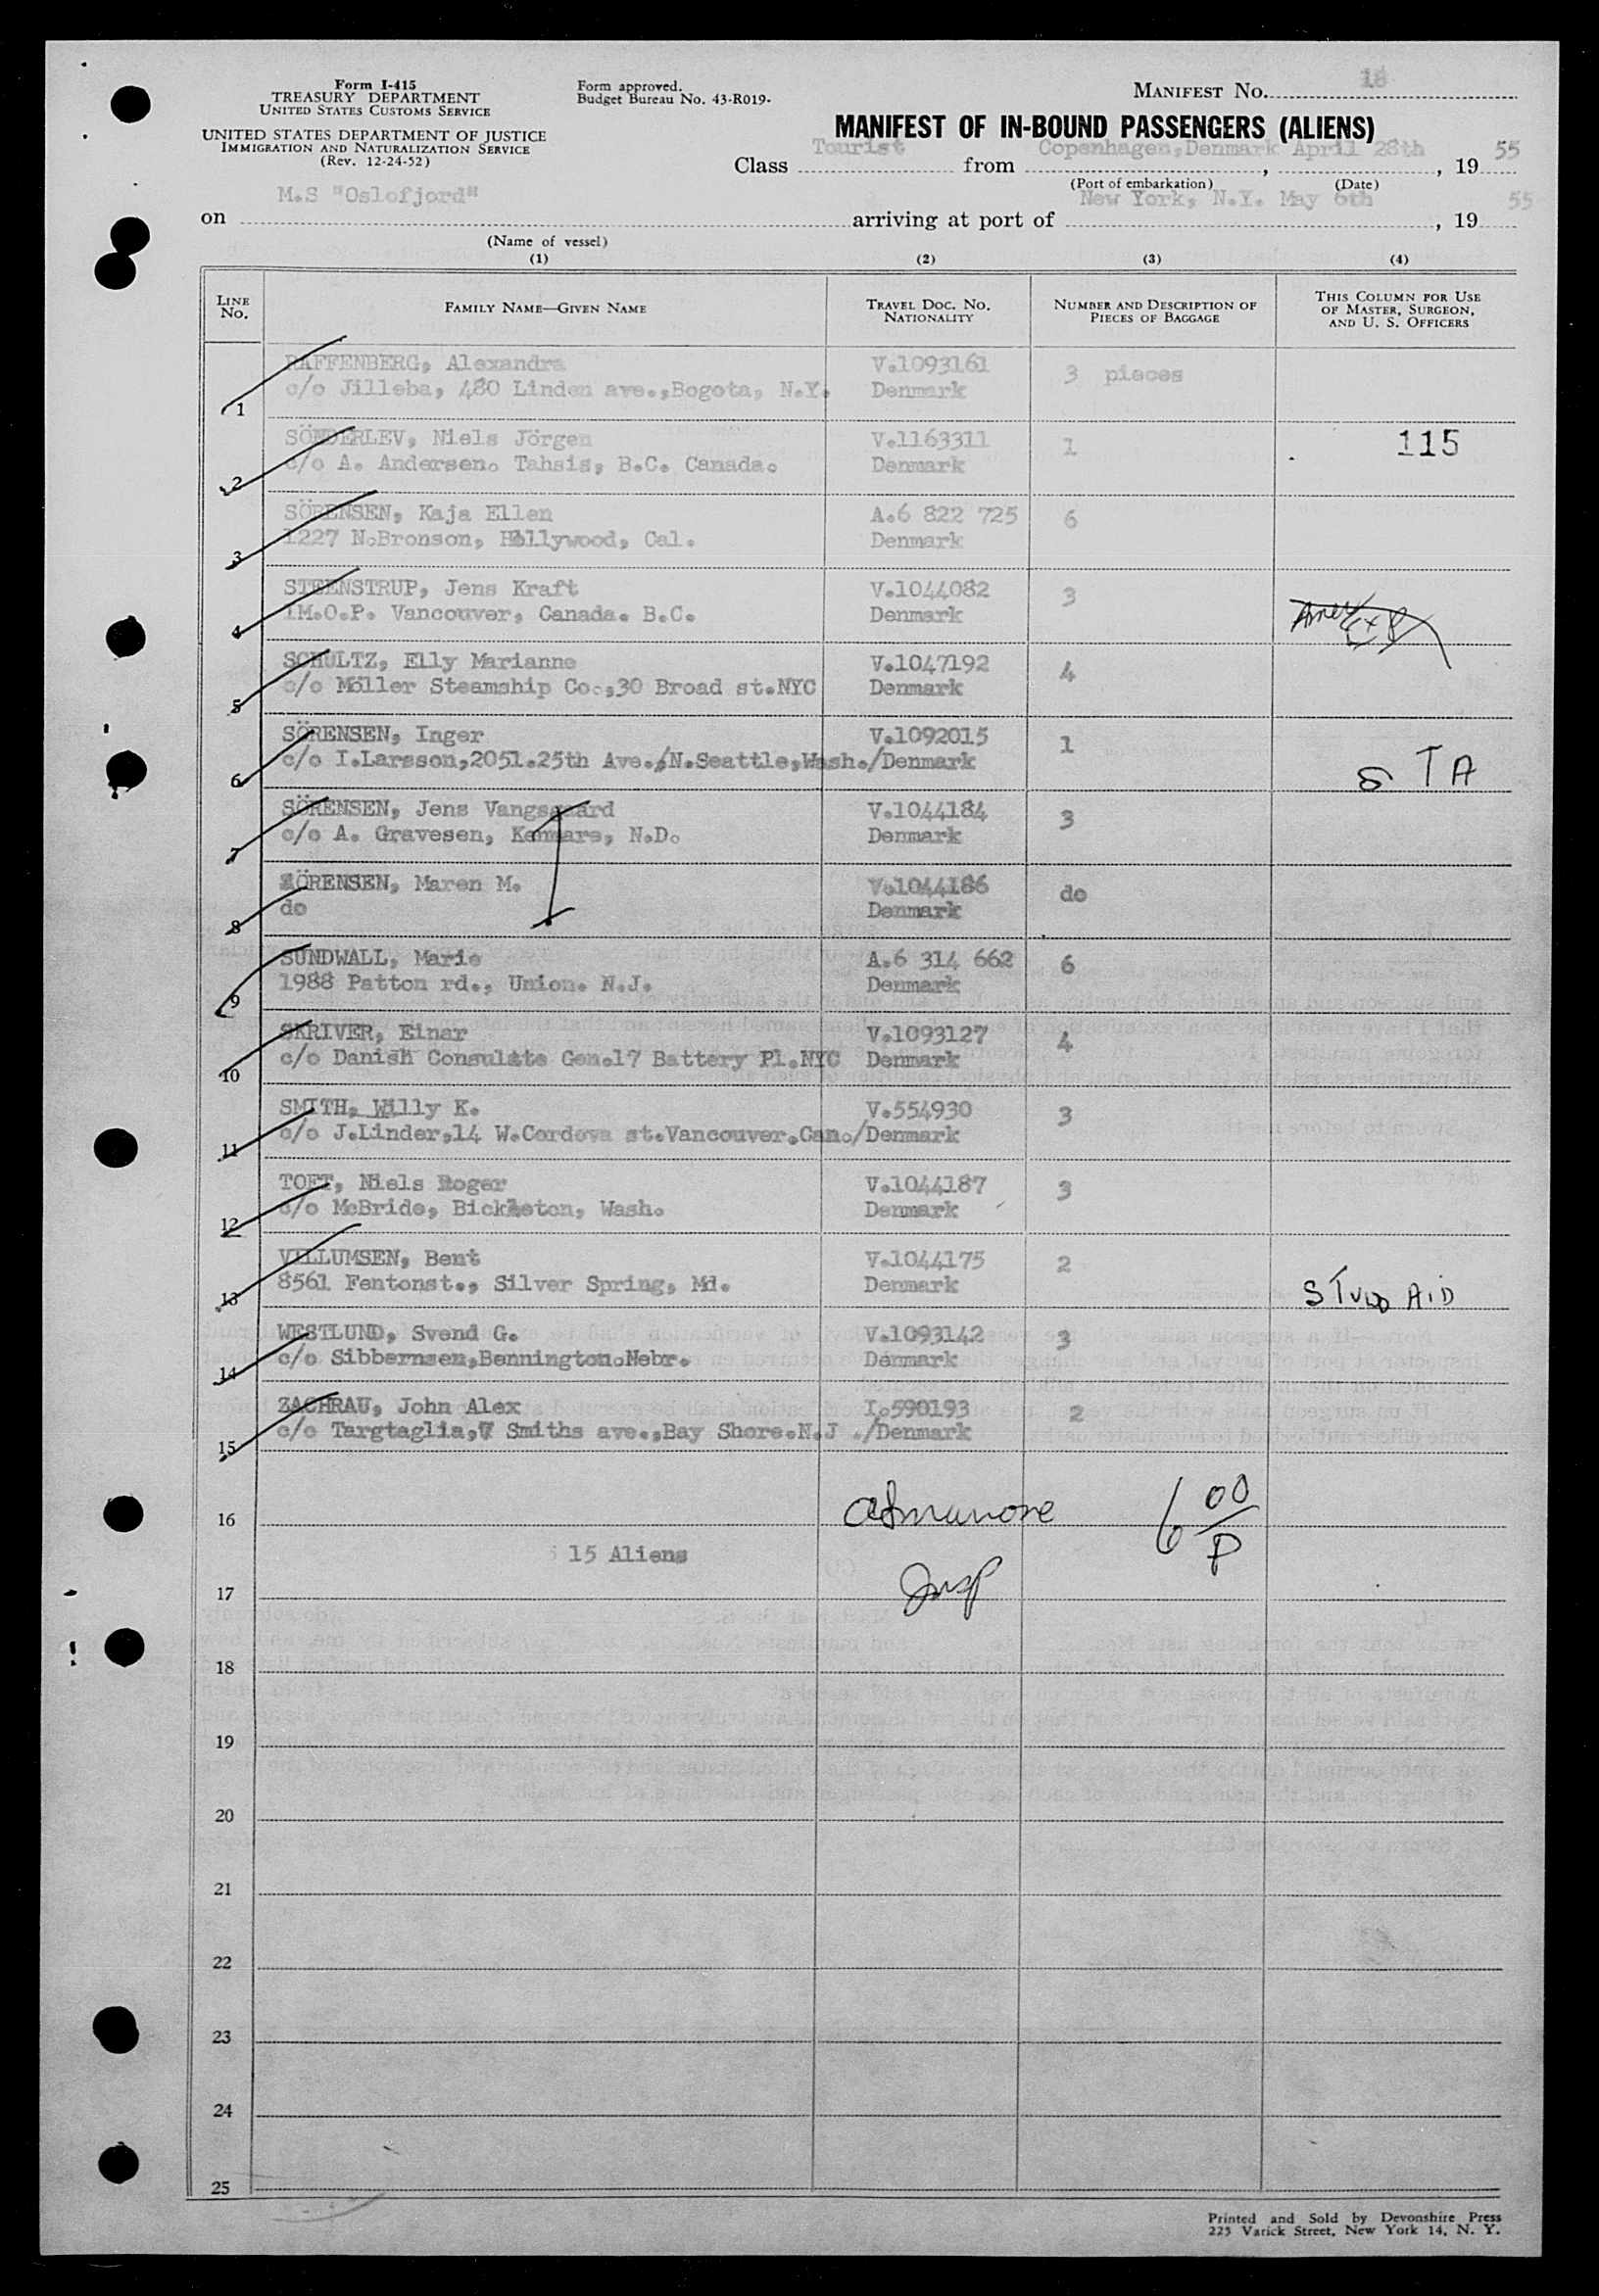 Form I-415
TREASURY DEPARTMENT
UNITED STATES CUSTOMS SERVICE
UNITED STATES DEPARTMENT OF JUSTICE
IMMIGRATION AND NATURALIZATION SERVICE
(Rev. 12-24-52)
Form approved.
Budget Bureau No. 43-R019-
MANIFEST NO. 18
MANIFEST OF IN-BOUND PASSENGERS (ALIENS)
Class Tourist from Copenhagen, Denmark April 28th, 19 55
(Port of embarkation) (Date)
on M.S "Oslofjord" arriving at port of New York, N.Y. May 6th, 19 55
(Name of vessel)
(1) (2) (3) (4)
LINE No. FAMILY NAME—GIVEN NAME TRAVEL DOC. NO. NATIONALITY NUMBER AND DESCRIPTION OF PIECES OF BAGGAGE THIS COLUMN FOR USE OF MASTER, SURGEON, AND U. S. OFFICERS
RAFFENBERG, Alexandra V.1093161 3 pieces
1 c/o Jilleba, 480 Linden ave.,Bogota, N.Y. Denmark
SÖNDERLEV, Niels Jörgen V.1163311 1 115
2 c/o A. Andersen. Tahsis, B.C. Canada. Denmark
SÖRENSEN, Kaja Ellen A.6 822 725 6
3 1227 N.Bronson, Hollywood, Cal. Denmark
STEENSTRUP, Jens Kraft V.1044082 3
4 IM.O.P. Vancouver, Canada. B.C. Denmark
SCHULTZ, Elly Marianne V.1047192 4
5 c/o Möller Steamship Co.,30 Broad st.NYC Denmark
SÖRENSEN, Inger V.1092015 1
6 c/o I.Larsson,2051.25th Ave.,N.Seattle,Wash./Denmark TA
SÖRENSEN, Jens Vangsgaard V.1044184 3
7 c/o A. Gravesen, Kenmare, N.D. Denmark
SÖRENSEN, Maren M. V.1044186 do
8 do Denmark
SUNDWALL, Marie A.6 314 662 6
9 1988 Patton rd., Union. N.J. Denmark
SKRIVER, Einar V.1093127 4
10 c/o Danish Consulate Gen.17 Battery Pl.NYC Denmark
SMITH, Willy K. V.554930 3
11 c/o J.Linder,14 W.Cordova st.Vancouver.Can./Denmark
TOFT, Niels Roger V.1044187 3
12 c/o McBride, Bickleton, Wash. Denmark
VILLUMSEN, Bent V.1044175 2
13 8561 Fentonst., Silver Spring, Md. Denmark
WESTLUND, Svend G. V.1093142 3
14 c/o Sibbernsen,Bennington.Nebr. Denmark
ZACHRAU, John Alex I.590193 2
15 c/o Targtaglia,7 Smiths ave.,Bay Shore.N.J ./Denmark
16
15 Aliens
17 Insp
18
19
20
21
22
23
24
25
Printed and Sold by Devonshire Press
225 Varick Street, New York 14, N. Y.